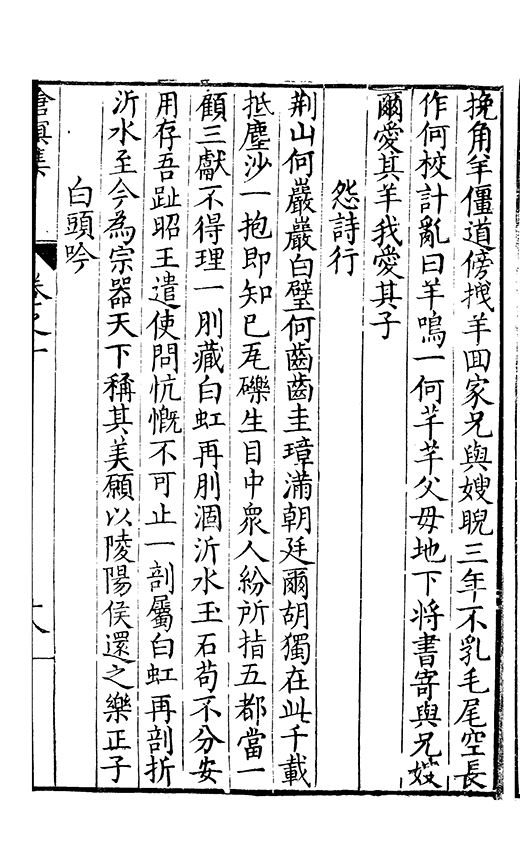 挽角羊僵道傍拽羊囬家兄與嫂睨三年不乳毛尾空長
作何校計亂曰羊鳴一何芊芊父母地下将書寄與兄嫂
爾愛其羊我愛其子
怨詩行
荆山何巖巖白璧何齒齒圭璋滿朝廷爾胡獨在此千載
抵塵沙一抱即知已瓦礫生目中衆人紛所指五都當一
顧三獻不得理一刖藏白虹再刖涸沂水玉石苟不分安
用存吾趾昭王遣使問忼慨不可止一剖屬白虹再剖折
沂水至今為宗器天下稱其美願以陵陽侯還之樂正子
白頭吟
滄溟集
卷之一
十八